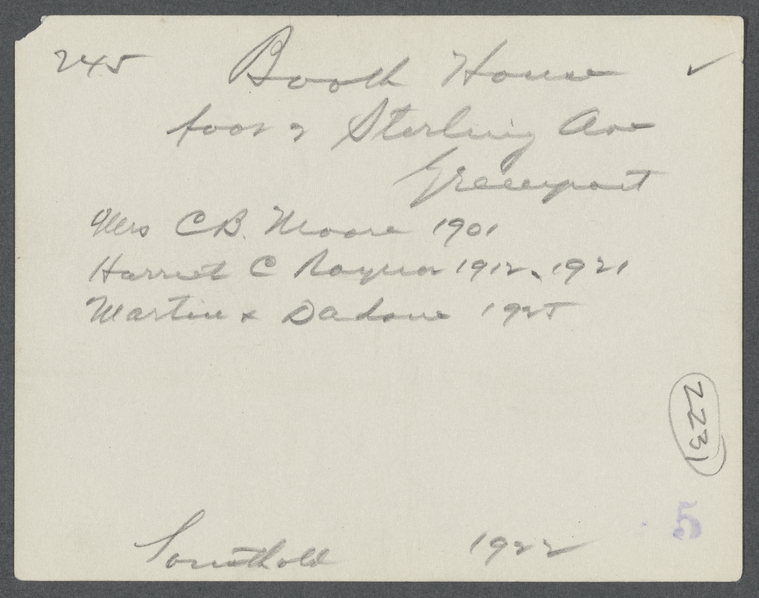 245 Booth House ✓
foot of Sterling Ave
Greenport
Mrs C B. Moore 1901
Harriet C Raynor 1912, 1921
Martin & 1925
2231
5
Southold 1922